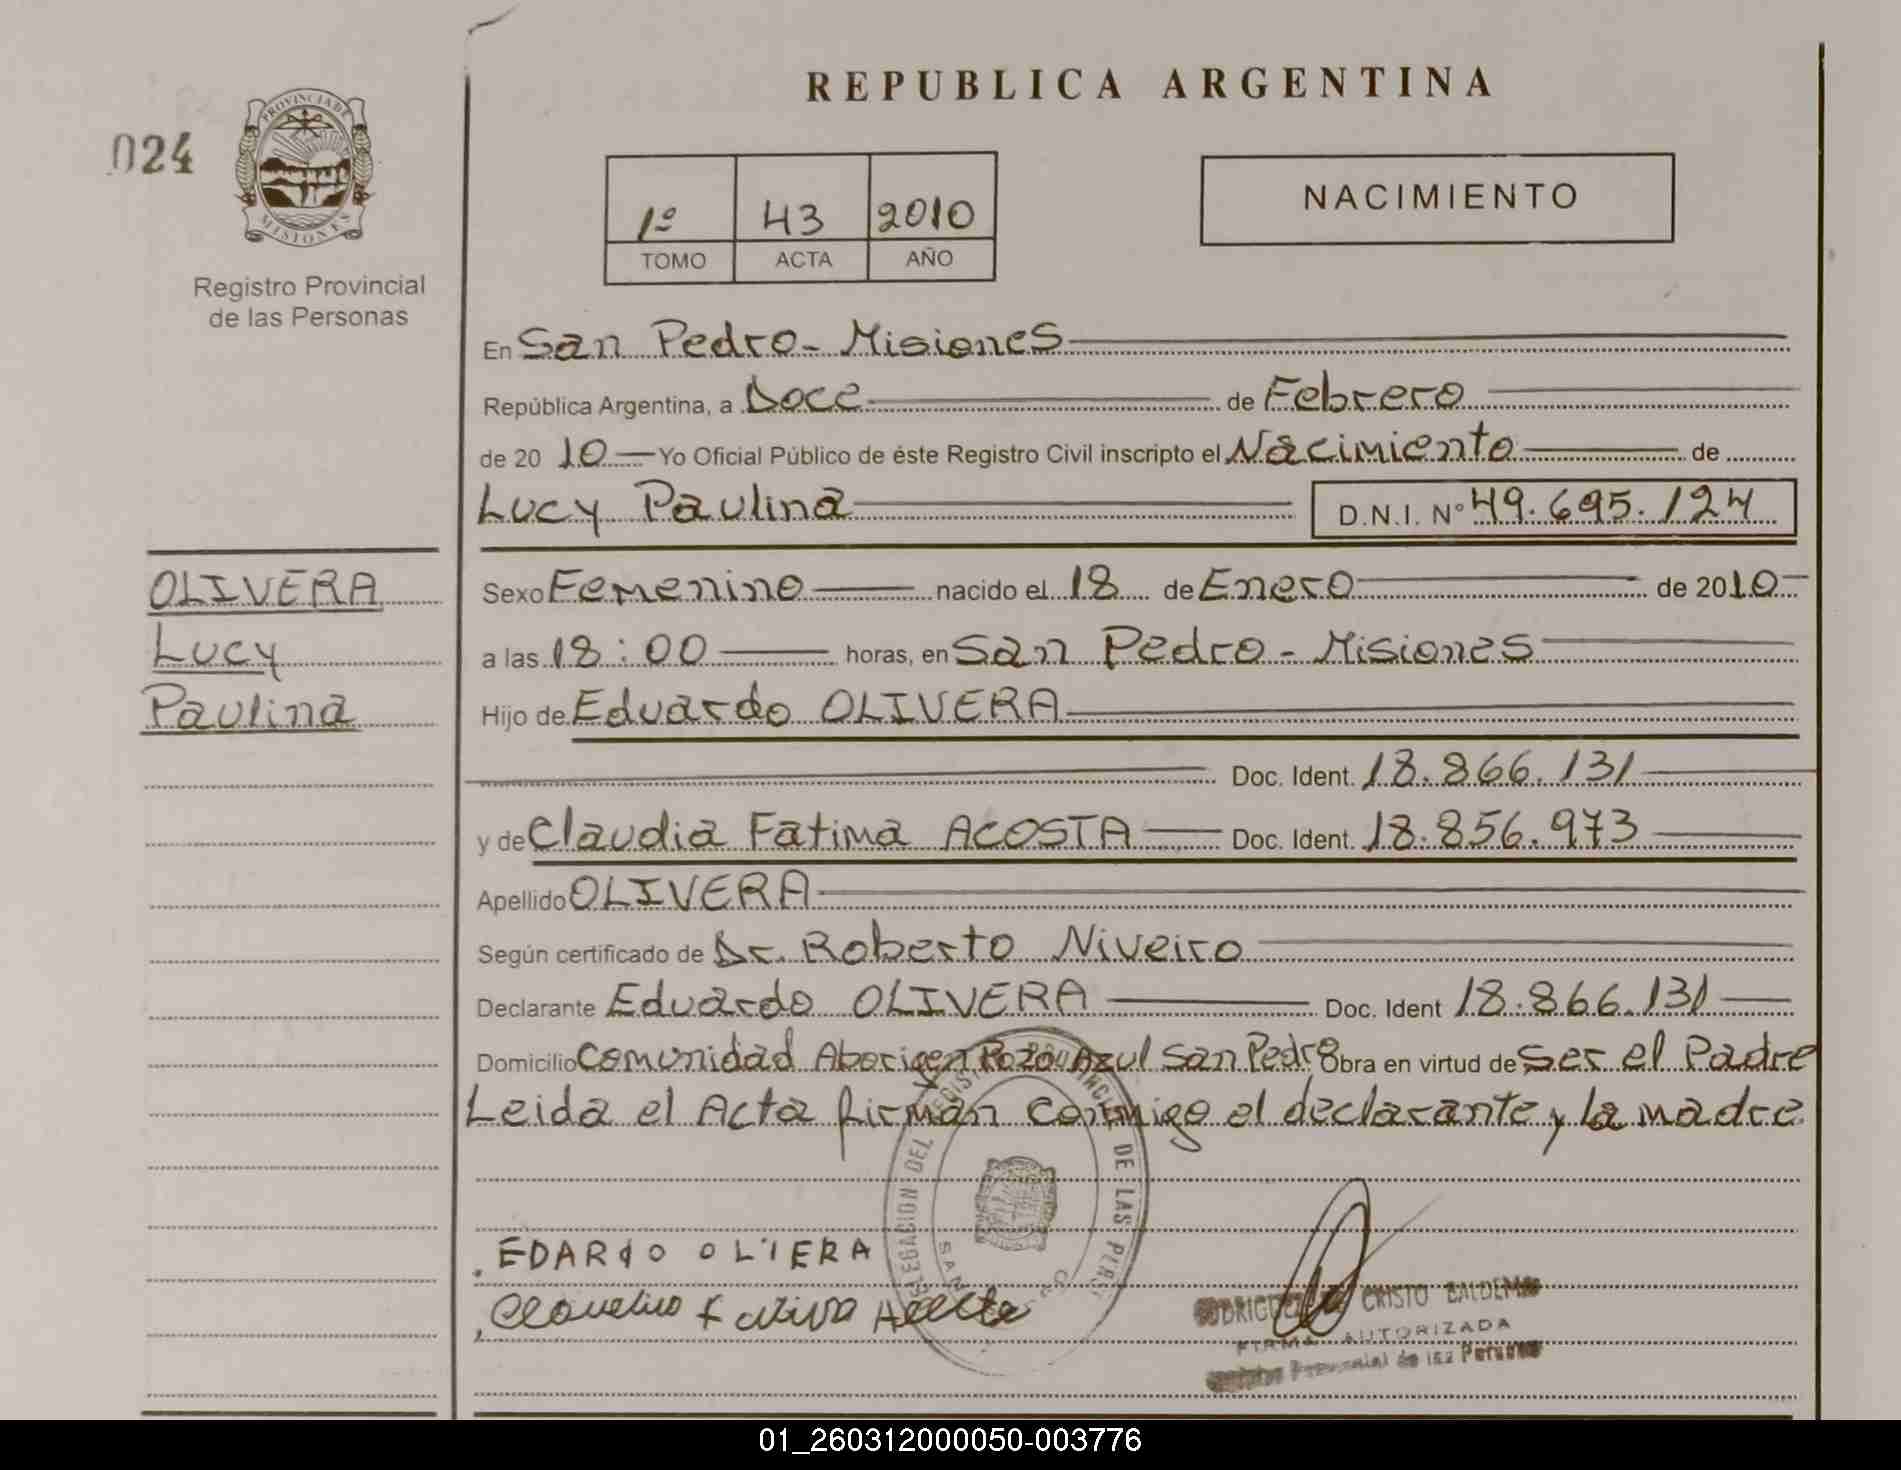 REPUBLICA ARGENTINA
024
PROVINCIA DE
MISIONES
Registro Provincial
de las Personas
1º 43 2010
TOMO ACTA AÑO
NACIMIENTO
En San Pedro - Misiones
República Argentina, a Doce de Febrero
de 2010 Yo Oficial Público de éste Registro Civil inscripto el Nacimiento de
Lucy Paulina D.N.I. Nº 49.695.124
OLIVERA
Lucy
Paulina
Sexo Femenino nacido el 18 de Enero de 2010
a las 18:00 horas, en San Pedro - Misiones
Hijo de Eduardo OLIVERA
Doc. Ident. 18.866.131
y de Claudia Fatima ACOSTA Doc. Ident. 18.856.973
Apellido OLIVERA
Según certificado de Dr. Roberto Niveiro
Declarante Eduardo OLIVERA Doc. Ident 18.866.131
Domicilio Comunidad Aborigen Pozo Azul San Pedro Obra en virtud de Ser el Padre
Leida el Acta firman conmigo el declarante y la madre
DELEGACION DEL REGISTRO PROVINCIAL DE LAS PERS
SAN
EDARDO OLIERA
CRISTO BALDEM
FIRMA AUTORIZADA
Provincial de las Personas
01_260312000050-003776